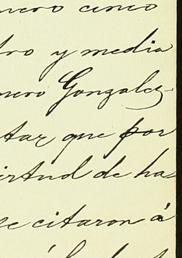 nero cinco
tro y media
mero Gonzalez-
tar que por
irtud de ha-
se citaron á